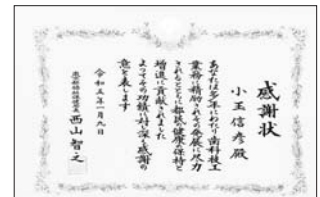 感謝状
小玉信彦殿
あなたは多年にわたり歯科技工
業務に精励されその発展に尽力
されるとともに都民の健康の保持と
増進に貢献されました
よってその功績に対し深く感謝の
意を表します
令和五年一月九日
西山智之